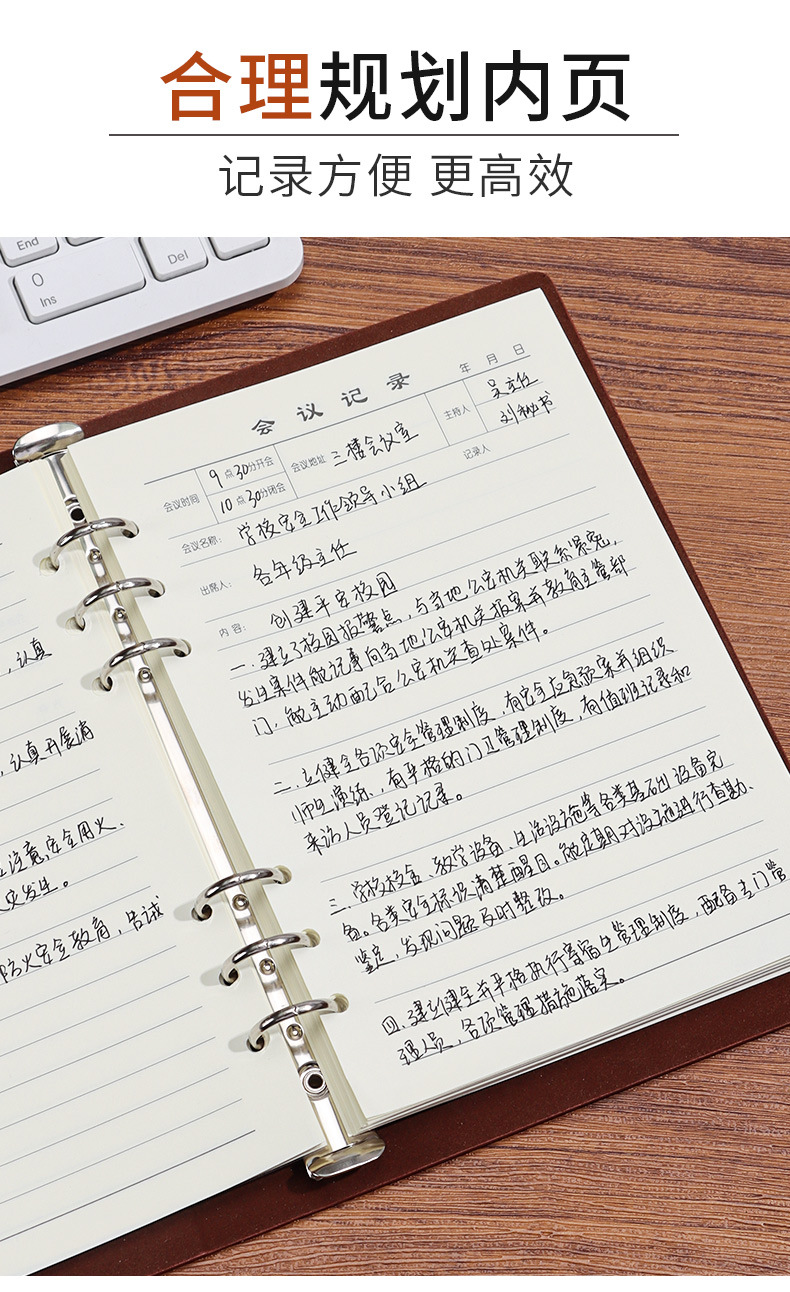 合理规划内页
记录方便 更高效
End
Del
0
Ins
会议记录
年 月 日
会议时间
9点30分开会
10点30分闭会
会议地址 三楼会议室
主持人 吴主任
记录人 刘秘书
会议名称: 学校安全工作领导小组
出席人: 各年级主任
内容: 创建平安校园
一、建立了校园报警点,与当地公安机关联系紧密,
发生案件能记事向当地公安机关报案并教育主管部
门,能主动配合公安机关查处案件。
二、立健全各项安全管理制度,有安全应急预案并组织
师生演练,有严格的门卫管理制度,有值班记录和
来访人员登记记录。
三、学校校舍、教学设备、生活设施等各类基础设备完
备。各类安全标识清楚醒目。能定期对设施进行查勘、
鉴定,发现问题及时整改。
四、建立健全并严格执行寄宿生管理制度,配备专门管
理人员,各项管理措施落实。
,认真
,认真开展消
注意安全用火、
火灾发生。
防火安全教育,告诫